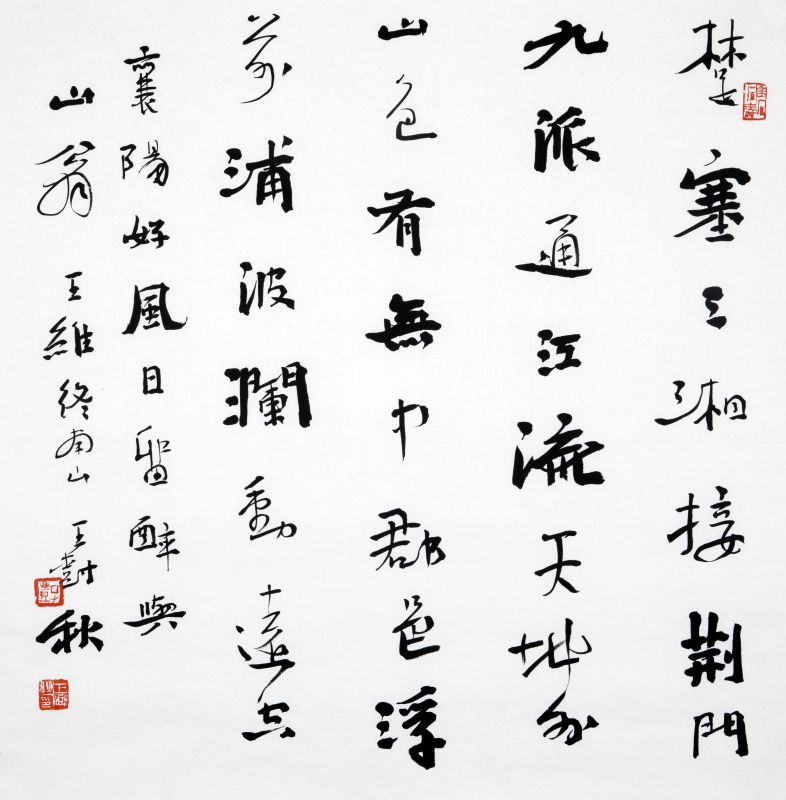 楚塞三湘接荆門
九派通江流天地外
山色有無中郡邑浮
前浦波瀾動遠空
襄陽好風日留醉與
山翁 王維終南山 王 秋